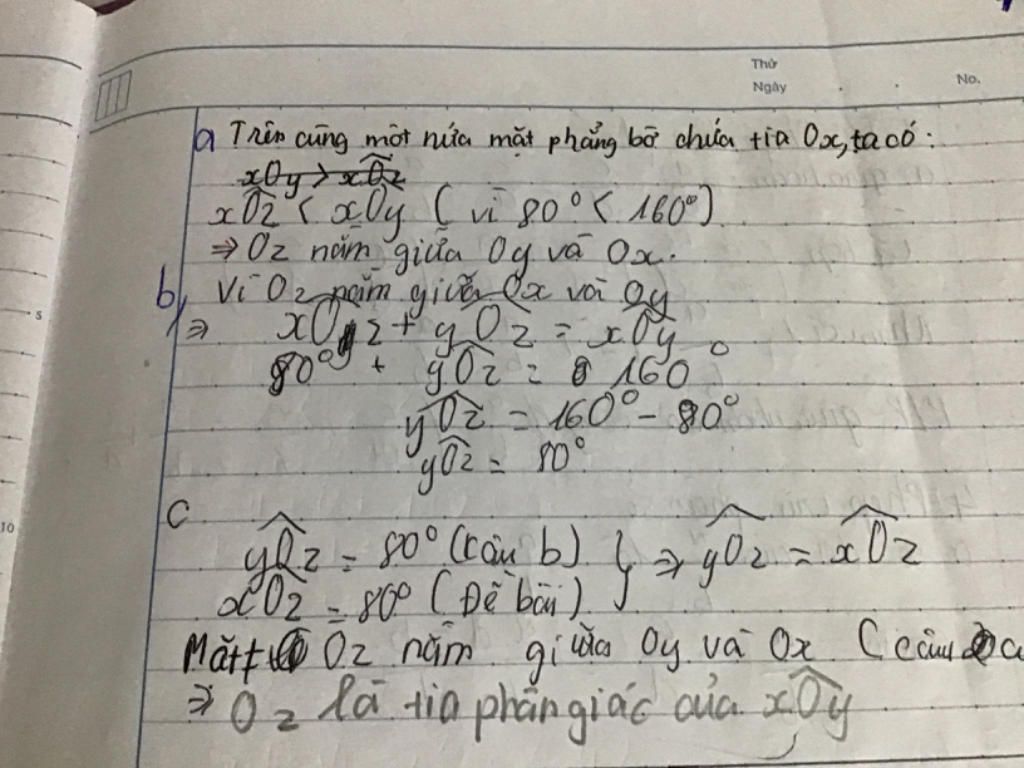 Thứ
Ngày . . No.
a Trên cùng một nửa mặt phẳng bờ chứa tia Ox, ta có:
xOy > xOz
xOz < xOy ( vì 80° < 160°)
⇒ Oz nằm giữa Oy và Ox.
b, Vì Oz nằm giữa Ox và Oy
⇒ xOz + yOz = xOy
80° + yOz = 160°
yOz = 160° - 80°
yOz = 80°
5
c
10
yOz = 80° (câu b) } ⇒ yOz = xOz
xOz = 80° (Đề bài)
Mặt Oz nằm giữa Oy và Ox (câu a
⇒ Oz là tia phân giác của xOy